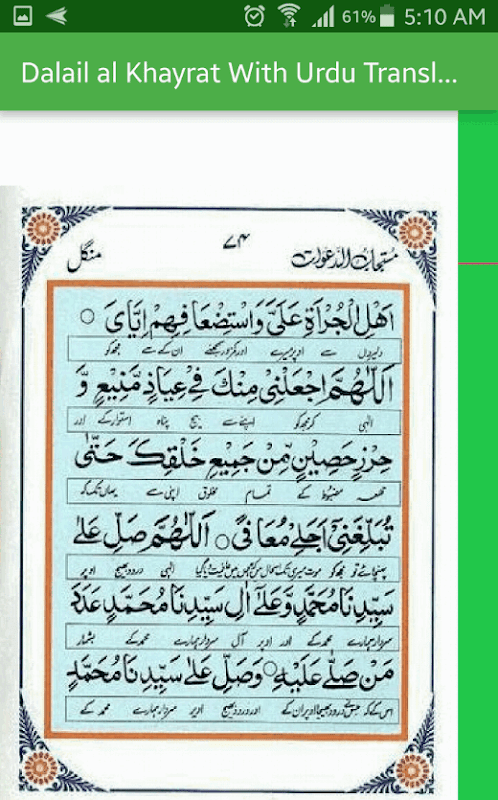 61% 5:10 AM
Dalail al Khayrat With Urdu Transl...
مستجاب الدعوات ۷۴ منگل
اَهْلِ الْجُرْاَةِ عَلَیَّ وَاسْتِضْعَافِهِمْ اِیَّایَ ○
دلیروں سے اوپر میرے اور کمزور سمجھنے ان کے سے مجھ کو
اَللّٰهُمَّ اجْعَلْنِیْ مِنْكَ فِیْ عِیَاذٍ مَّنِیْعٍ وَّ
الٰہی کر مجھ کو اپنے سے بیچ پناہ استوار کے اور
حِرْزٍ حَصِیْنٍ مِّنْ جَمِیْعِ خَلْقِكَ حَتّٰی
مضبوط کے تمام مخلوق اپنی سے یہاں تک کہ
تُبَلِّغَنِیْ اَجَلِیْ مُعَافًی ○ اَللّٰهُمَّ صَلِّ عَلٰی
پہنچائے تو مجھ کو موت میری تک الٰہی درود بھیج اوپر
سَیِّدِنَا مُحَمَّدٍ وَّعَلٰۤی اٰلِ سَیِّدِنَا مُحَمَّدٍ عَدَدَ
سردار ہمارے محمد کے اور اوپر آل سردار ہمارے محمد کے بشمار
مَنْ صَلّٰی عَلَیْهِ ○ وَصَلِّ عَلٰی سَیِّدِنَا مُحَمَّدٍ
اس کے کہ جس نے درود بھیجا اوپر ان کے اور درود بھیج اوپر سردار ہمارے محمد کے